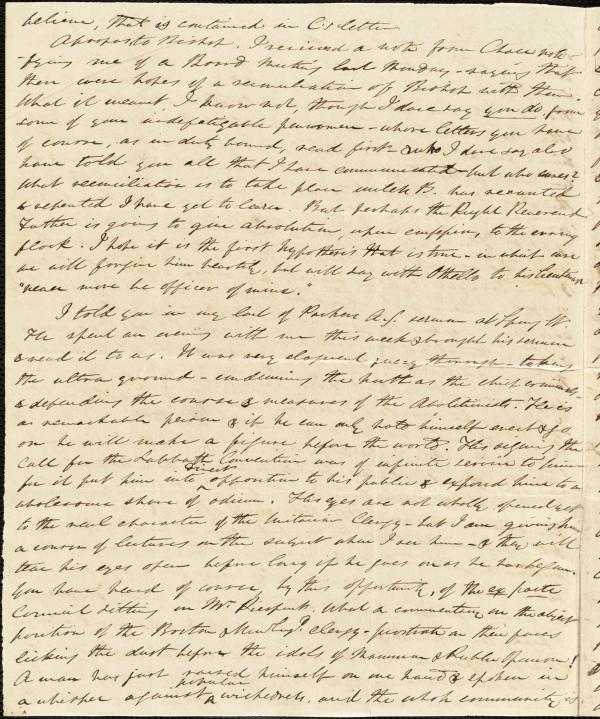 believe, that is contained in C's letter.
Apropos to Bishop. I received a note from Chace noti-
-fying me of a Board Meeting last Monday - saying that
there were hopes of a reconciliation of Bishop with them.
What it meant, I know not, though I dare say you do, from
some of your indefatigable penwomen - whose letters you have
of course, as in duty bound, read first - & who I dare say also
have told you all that I have communicated - but who cares?
What reconciliation is to take place unless B. has recanted
& repented I have yet to learn. But perhaps the Right Reverend
Father is going to give absolution, upon confession, to the erring
flock. I hope it is the first hypothesis that is true - in which case
we will forgive him heartily, but will say with Othello to his lieutenant
"never more be officer of mine."
I told you in my last of Parkers A.S. sermon at Spring St.
He spent an evening with me this week & brought his sermon
& read it to us. It was very eloquent, very thorough - taking
the ultra ground - condemning the north as the chief criminal
& defending the course & measures of the Abolitionists. He is
a remarkable person & if he can only hold himself erect & go
on he will make a figure before the world. His signing the
Call for the Sabbath Convention was of infinite service to him
for it put him into direct opposition to his public & exposed him to a
wholesome share of odium. His eyes are not wholly opened yet
to the real character of the Unitarian Clergy - but I am giving him
a course of lectures on the subject when I see him - & they will
tear his eyes open before long if he goes on as he has begun.
You have heard of course, by this opportunity, of the ex parte
Council sitting on Mr. Pierpont. What a commentary on the abject
position of the Boston & New Eng.d clergy - prostrate on their faces
licking the dust before the idols of Mammon & Public Opinion!
A man has just raised himself on one hand & spoken in
a whisper against popular wickedness, and the whole community is